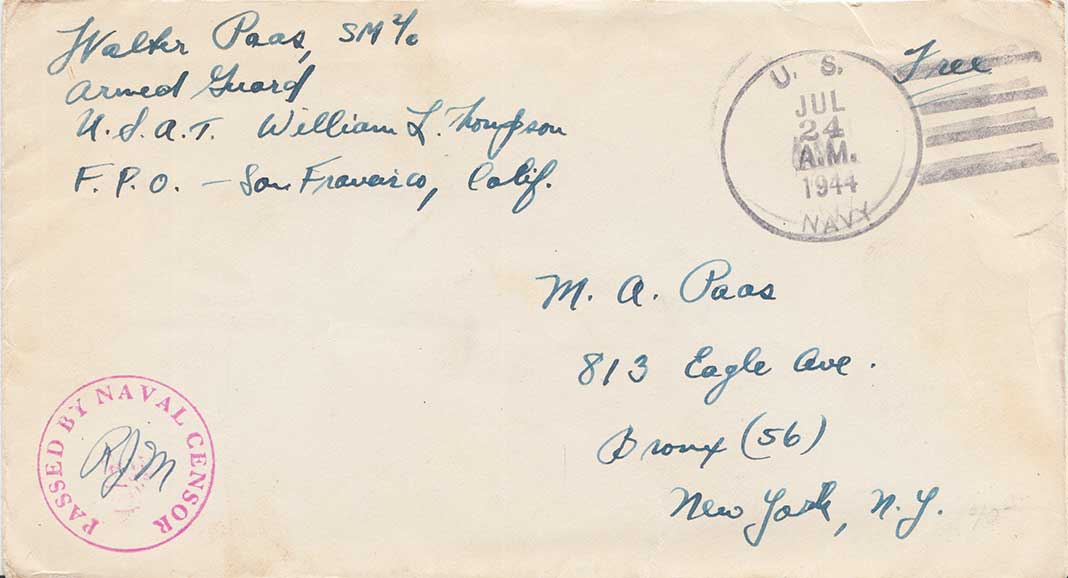 Walter Paas, SM 1/c
Armed Guard
U.S.A.T. William L. Thompson
F.P.O. - San Francisco, Calif.
Free
U. S.
JUL
24
A.M.
1944
NAVY
M. A. Paas
813 Eagle Ave.
Bronx (56)
New York, N.Y.
PASSED BY NAVAL CENSOR
RJM